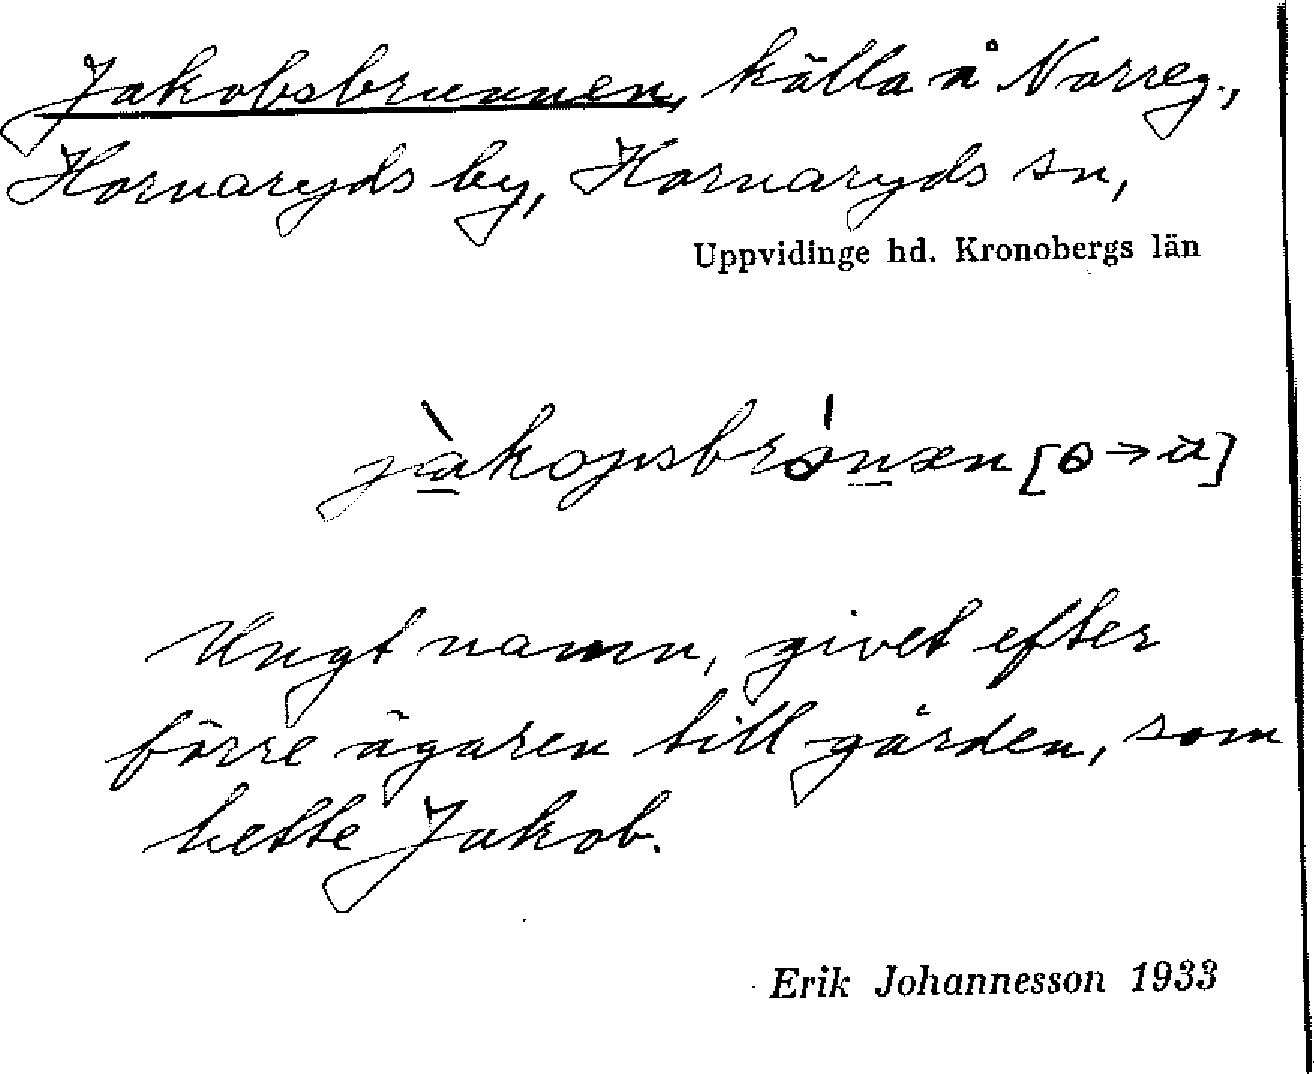 Jakobsbrunnen, källa å Norreg.,
Hornaryds by, Hornaryds sn,
Uppvidinge hd. Kronobergs län
Ungt namn, givet efter
förre ägaren till gården, som
hette Jakob.
Erik Johannesson 1933